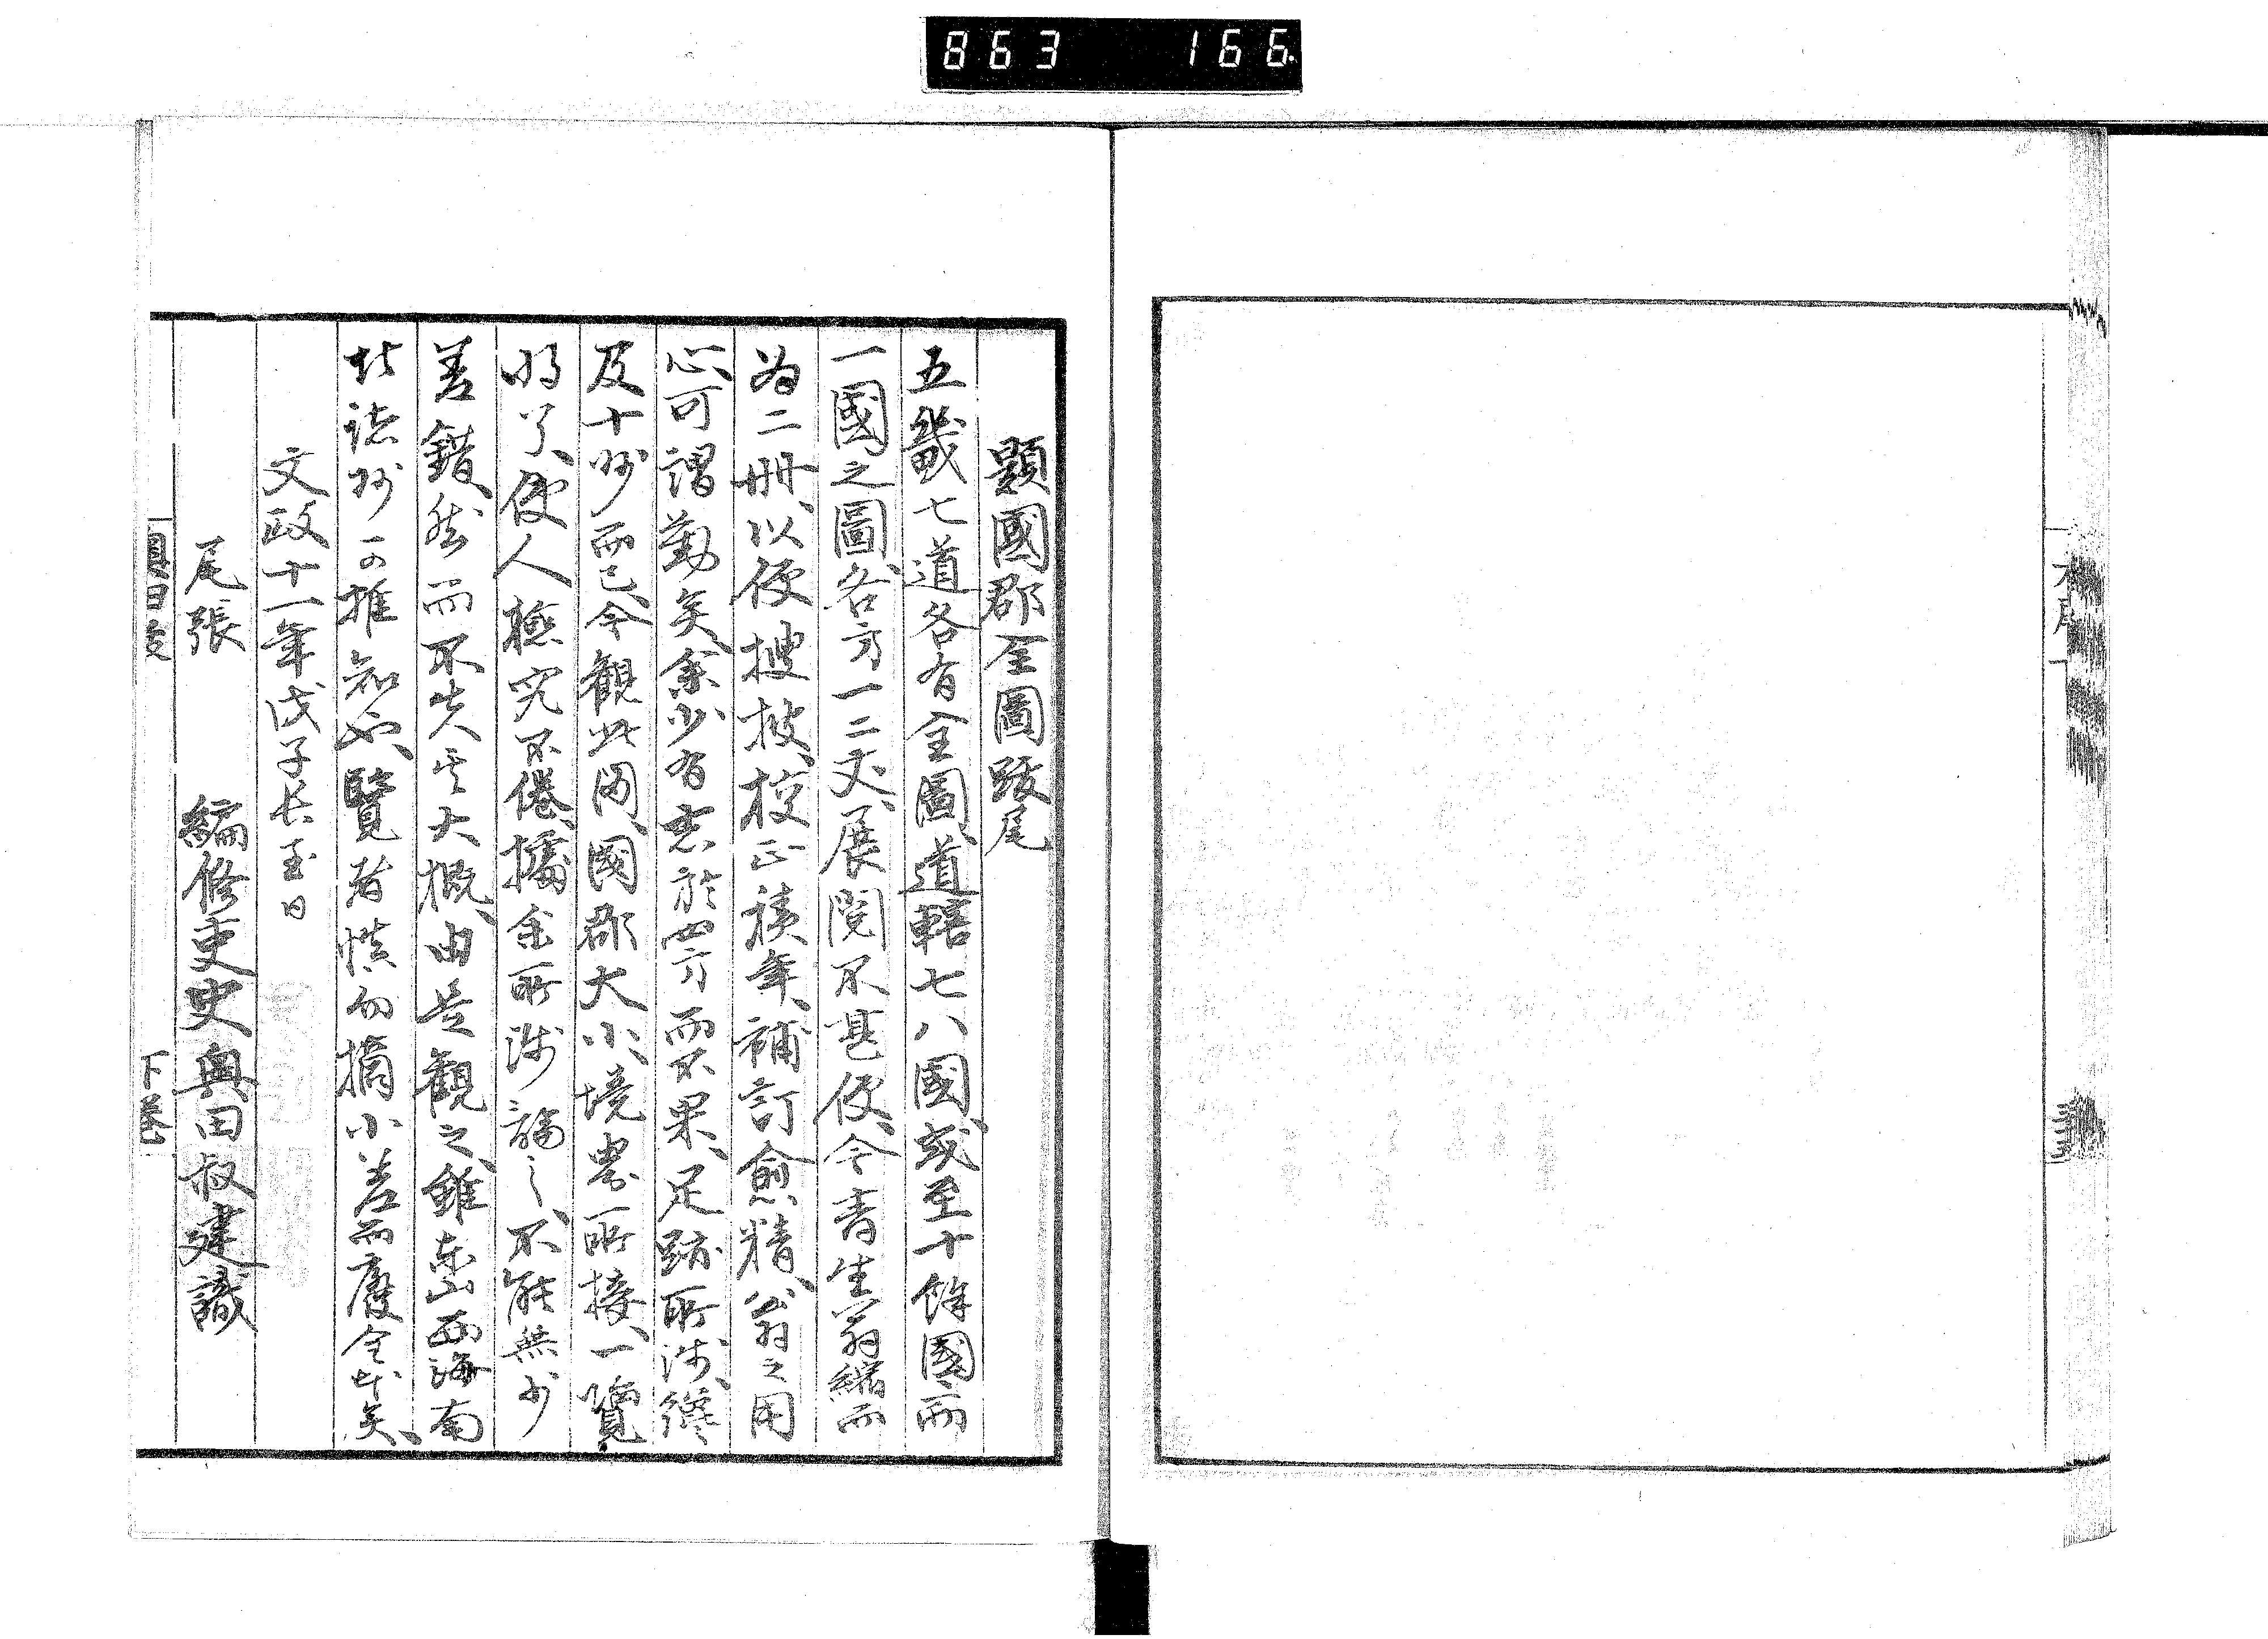 863 166
題國郡全圖跋尾
五畿七道各有全圖、道轄七八國、或至十餘國、而
一國之圖、各方一二丈、展閱不甚便、今青生翁縮而
为二冊、以便搜披、校正積年、補訂愈精、翁之用
心、可謂勤矣、余少有志於四方而不果、足跡所涉、纔
及十州而已、今觀此圖、國郡大小、境界所接、一覽
明了、便人極究不倦、據余所涉論之、不能無少
差錯、然而不失其大概、由是觀之、雖東山西海南
北諸州、可推知也、覽者慎勿摘小差而廢全本矣、
文政十一年戊子長至日
尾張 編修吏史奧田叔建識
下卷